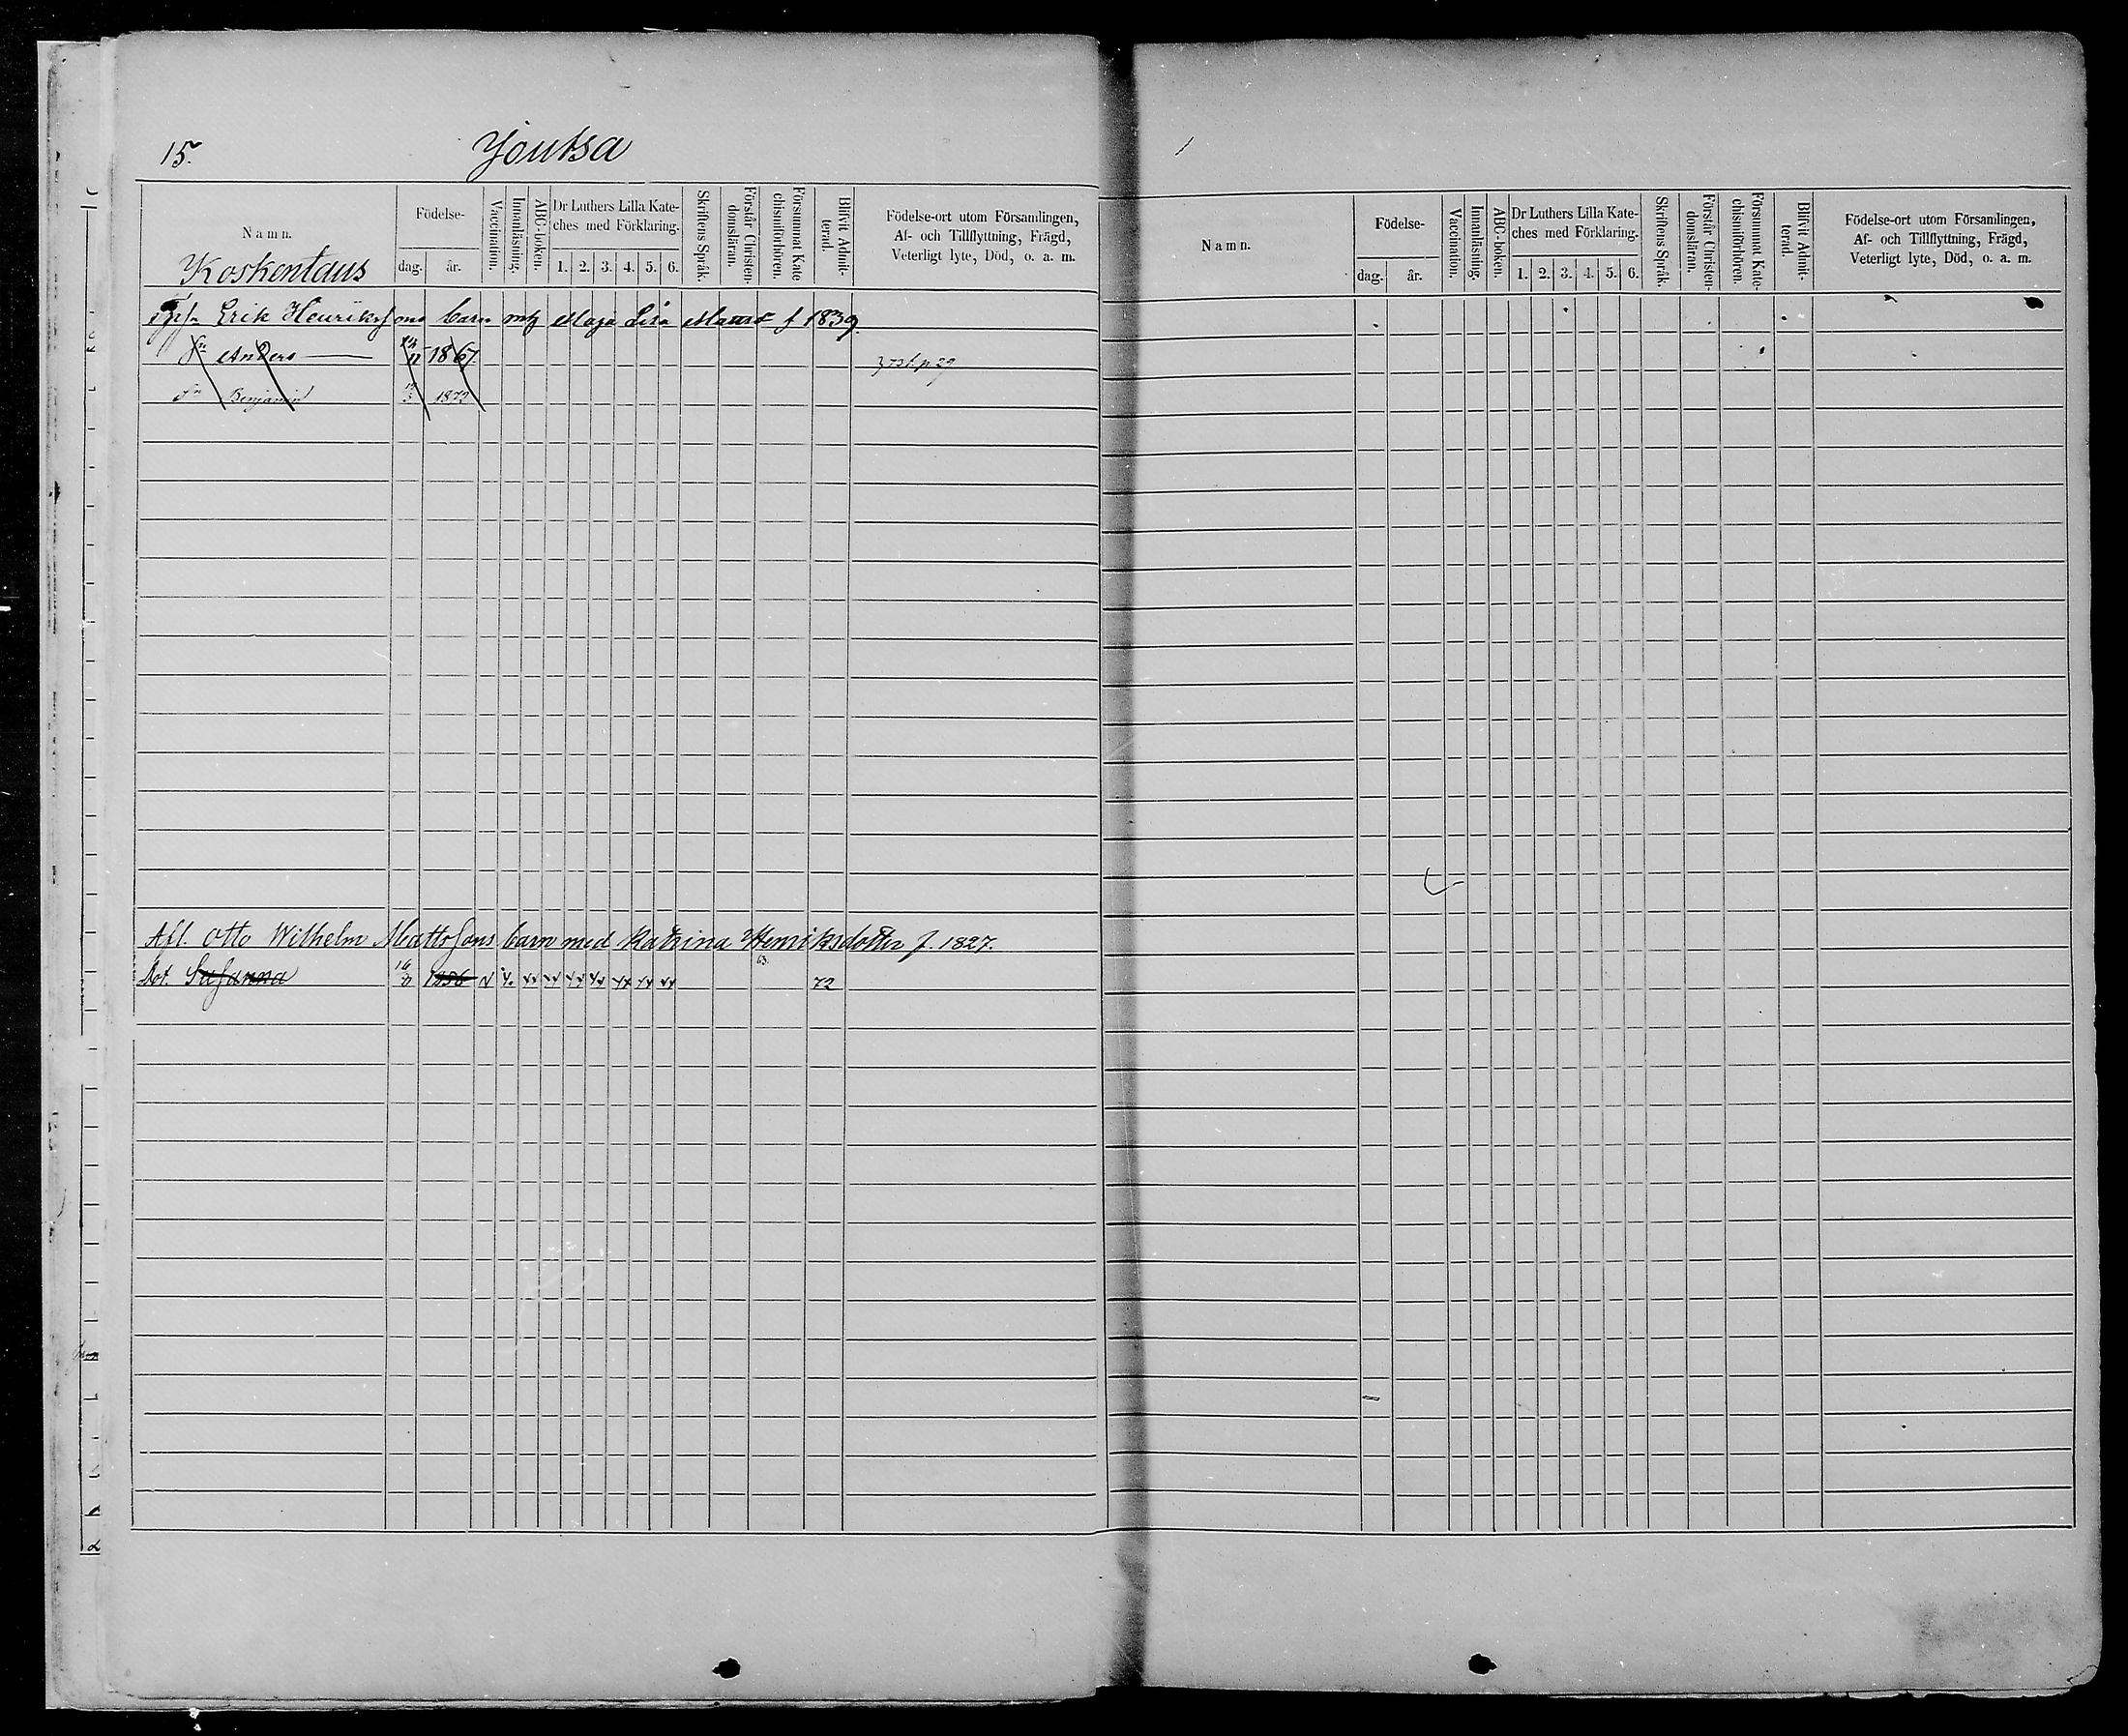 15.
Joutsa
Namn.
Födelse-
dag.
år.
Vaccination.
Innanläsning.
ABC-boken.
Dr Luthers Lilla Kate-
ches med Förklaring.
1. 2. 3. 4. 5. 6.
Skriftens Språk.
Förstår Christen-
domsläran.
Försummat Kate
chismiförhören.
Blifvit Admit-
terad.
Födelse-ort utom Församlingen,
Af- och Tillflyttning, Frägd,
Veterligt lyte, Död, o. a. m.
Koskentaus
Erik Henrikssons barn Maja Lisa f 1839.
Sn Anders 1867.
Sn Benjamin 1872
Afl. Otto Wilhelm Mattssons barn med Katrina Henriksdotter f. 1827.
63.
Dot. Susanna 16/8 1856 72
Namn.
Födelse-
dag.
år.
Vaccination.
Innanläsning.
ABC-boken.
Dr Luthers Lilla Kate-
ches med Förklaring.
1. 2. 3. 4. 5. 6.
Skriftens Språk.
Förstår Christen-
domsläran.
Försummat Kate-
chismiförhören.
Blifvit Admit-
terad.
Födelse-ort utom Församlingen,
Af- och Tillflyttning, Frägd,
Veterligt lyte, Död, o. a. m.